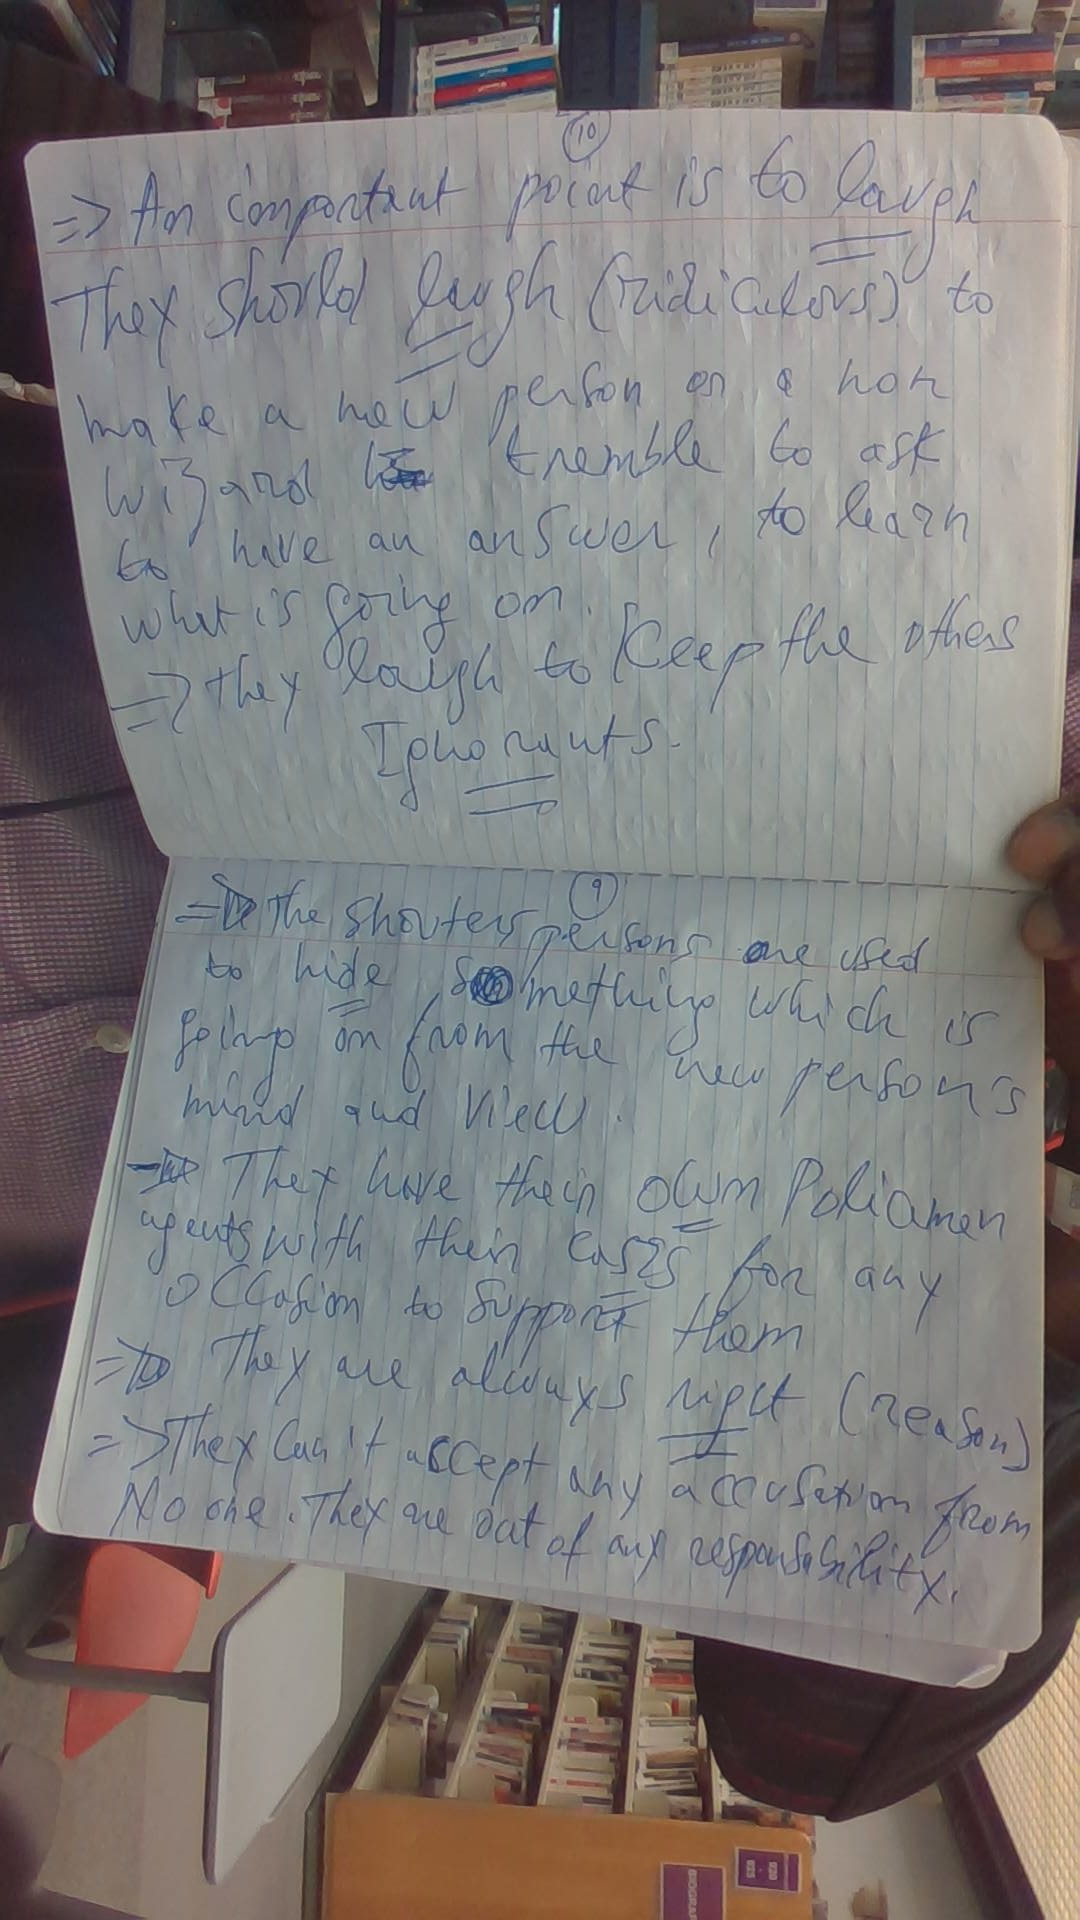 10
=> An important point is to laugh
They should laugh (ridiculous) to
make a new person or a non
wizard tremble to ask
to have an answer, to learn
what is going on.
=> They laugh to Keep the others
Ignorants.
9
=> The shouters persons are used
to hide something which is
going on from the new person's
mind and view.
=> They have their own Policemen
agents with their cases for any
occasion to support them
=> They are always right (reason)
=> They can't accept any accusation from
No one. They are out of any responsibility.
920
BIOGRAP